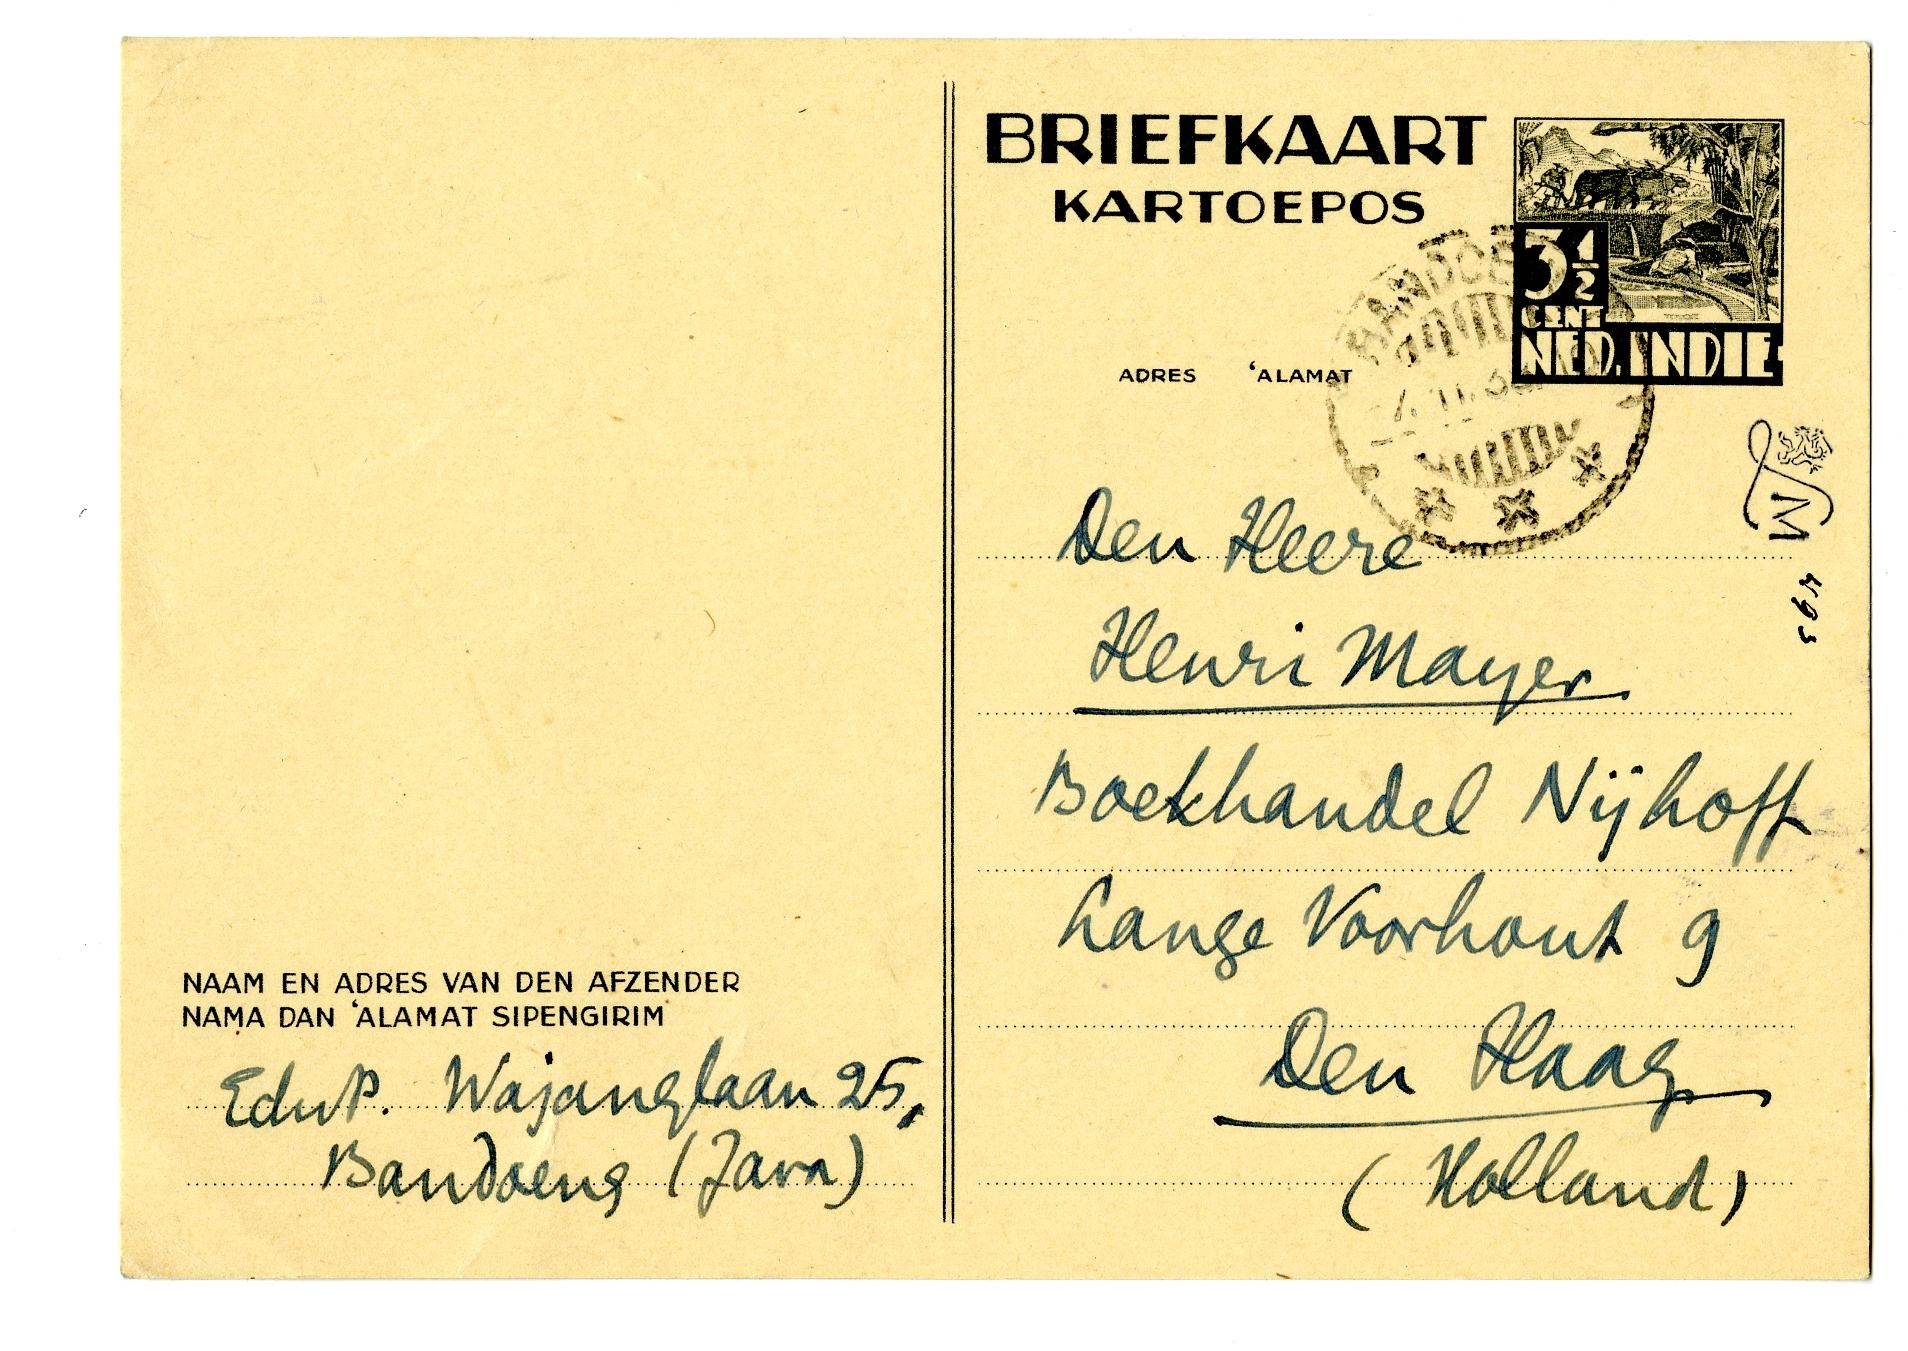 BRIEFKAART
KARTOEPOS
3 1/2
CENT
NED. INDIE
ADRES 'ALAMAT
Den Heere
Henri Mayer
Boekhandel Nijhoff
Lange Voorhout 9
Den Haag
(Holland)
M
495
NAAM EN ADRES VAN DEN AFZENDER
NAMA DAN 'ALAMAT SIPENGIRIM
EduP. Wajanglaan 25,
Bandoeng (Java)